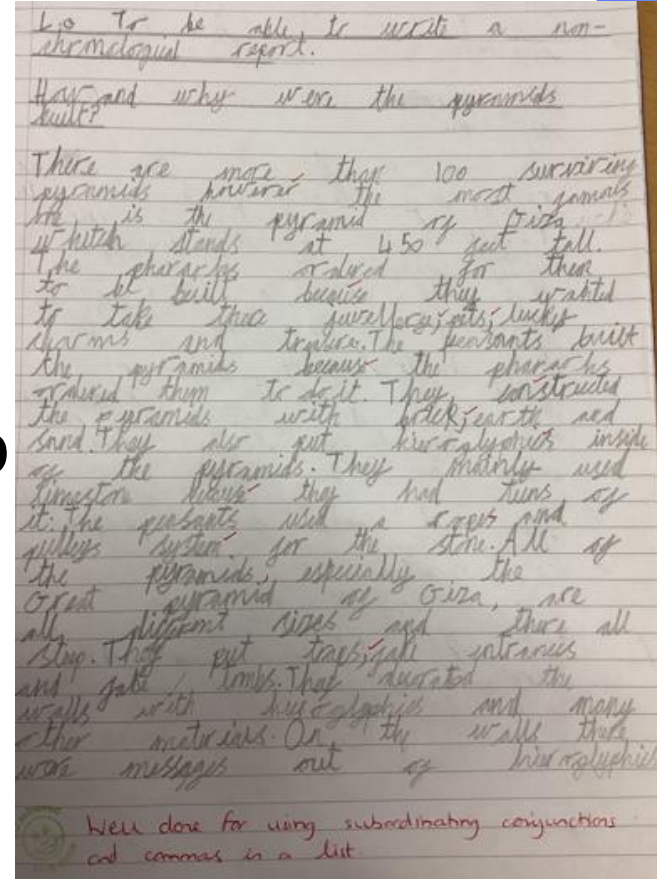 L.o To be able to write a non-
chronological report.
How and why were the pyramids
built?
There are more than 100 surviving
pyramids however the most famous
one is the pyramid of Giza
whitch stands at 450 feet tall.
The pharachs ordered for them
to be built because they wanted
to take there juwellery, pets, lucky
charms and trasure. The peasants built
the pyramids because the pharachs
ordered them to do it. They constructed
the pyramids with brick, earth and
sand. They also put hieroglyphics inside
of the pyramids. They mainly used
limestone because they had tuns of
it. The peasants used a ropes and
pulleys system for the stone. All of
the pyramids, especially the
Great pyramid of Giza, are
all different sizes and there all
steep. They put traps, fake entrances
and fake tombs. They decorated the
walls with hieroglyphics and many
other materials. On the walls there
were messages out of hieroglyphics
Well done for using subordinating conjunctions
and commas in a list.